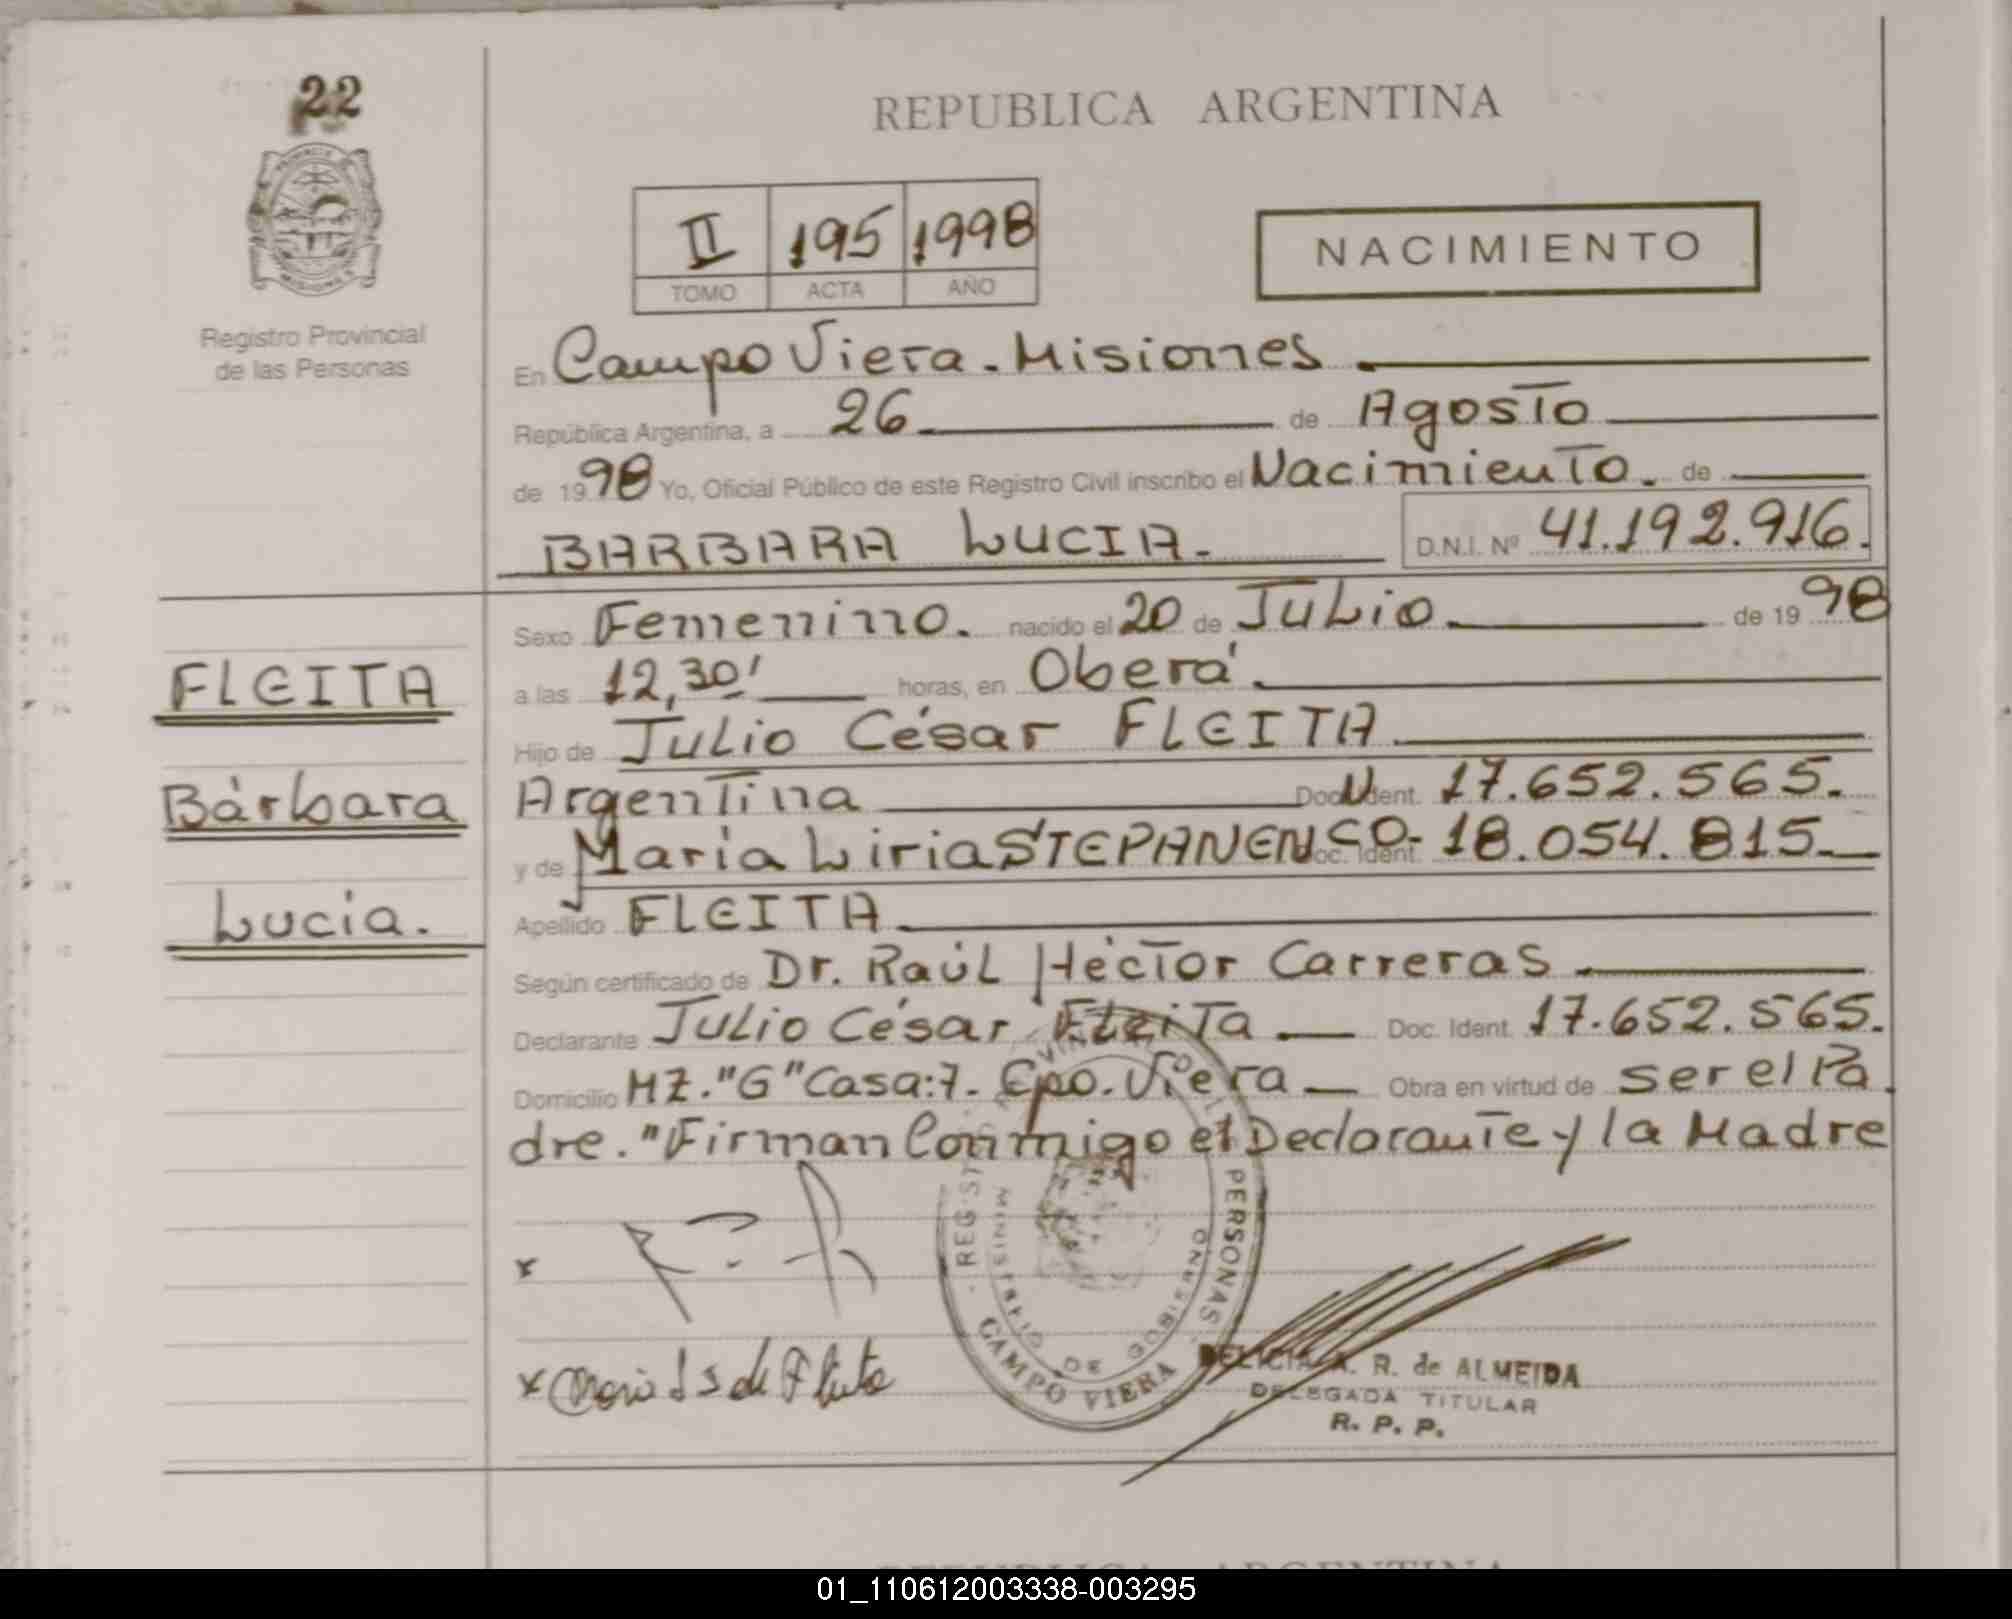 22
REPUBLICA ARGENTINA
II 195 1998
TOMO ACTA AÑO
NACIMIENTO
Registro Provincial
de las Personas
En Campo Viera. Misiones
República Argentina, a 26 de Agosto
de 1998 Yo, Oficial Público de este Registro Civil inscribo el Nacimiento. de
BARBARA LUCIA. D.N.I. Nº 41.192.916.
Sexo Femenino. nacido el 20 de Julio de 1998
FLEITA
a las 12,30' horas, en Oberá.
Hijo de Julio César FLEITA
Bárbara
Argentina Doc. Ident. 17.652.565.
y de María Liria STEPANENCO. Doc. Ident. 18.054.815.
Lucía.
Apellido FLEITA
Según certificado de Dr. Raúl Héctor Carreras
Declarante Julio César Fleita Doc. Ident. 17.652.565.
Domicilio MZ. "G" Casa: 7. Cpo. Viera Obra en virtud de ser el Pa
dre. "Firman Conmigo el Declarante y la Madre
PERSONAS
MINISTERIO DE GOBIERNO
CAMPO VIERA
x
x
DELICIA A. R. de ALMEIDA
DELEGADA TITULAR
R. P. P.
REPUBLICA ARGENTINA
01_110612003338-003295